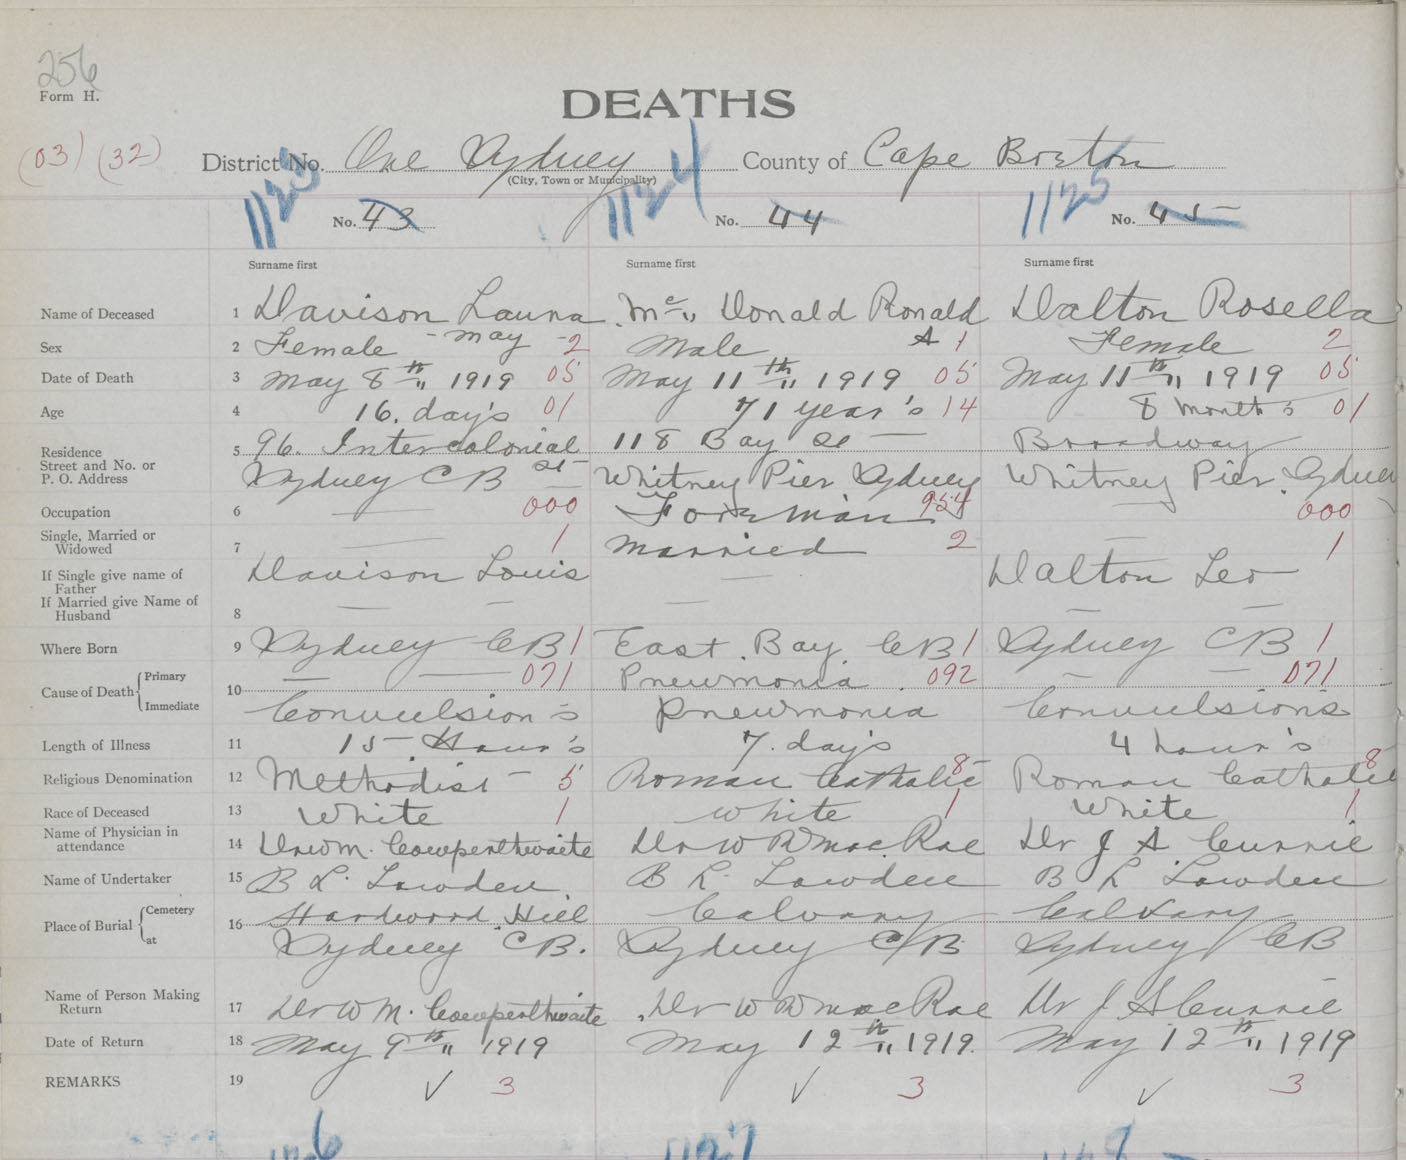 256
Form H.
DEATHS
(03) (32) District No. One Sydney County of Cape Breton
(City, Town or Municipality)
1123 No. 43 1124 No. 44 1125 No. 45
Surname first Surname first Surname first
Name of Deceased 1 Davison Launa Mc Donald Ronald Dalton Rosella
Sex 2 Female - May - 2 Male A 1 Female 2
Date of Death 3 May 8th 1919 05 May 11th 1919 05 May 11th 1919 05
Age 4 16. day's 01 71 year's 14 8 months 01
Residence
Street and No. or
P. O. Address
5 96. Intercolonial St 118 Bay St Broadway
Sydney CB Whitney Pier Sydney Whitney Pier Sydney
Occupation 6 — 000 Foreman 954 — 000
Single, Married or
Widowed
7 — 1 Married 2 — 1
If Single give name of
Father
Davison Louis — Dalton Leo
If Married give Name of
Husband
8 — — — — —
Where Born 9 Sydney CB 1 East Bay. CB 1 Sydney CB 1
Cause of Death Primary — — 071 Pneumonia 092 — — 071
Immediate 10 Convulsion's Pneumonia Convulsions
Length of Illness 11 15 Hour's 7. day's 4 hour's
Religious Denomination 12 Methodist - 5 Roman Catholic 8 Roman Catholic 8
Race of Deceased 13 White 1 White 1 White 1
Name of Physician in
attendance
14 Dr W M. Cowperthwaite Dr W R mac Rae Dr J A Currie
Name of Undertaker 15 B L. Lowden B L. Lowden B L Lowden
Place of Burial Cemetery 16 Hardwood Hill Calvary Calvary
at Sydney CB. Sydney C/B Sydney CB
Name of Person Making
Return
17 Dr W M. Cowperthwaite Dr W R mac Rae Dr J A Currie
Date of Return 18 May 9th 1919 May 12th 1919. May 12th 1919
REMARKS 19 ✓ 3 ✓ 3 ✓ 3